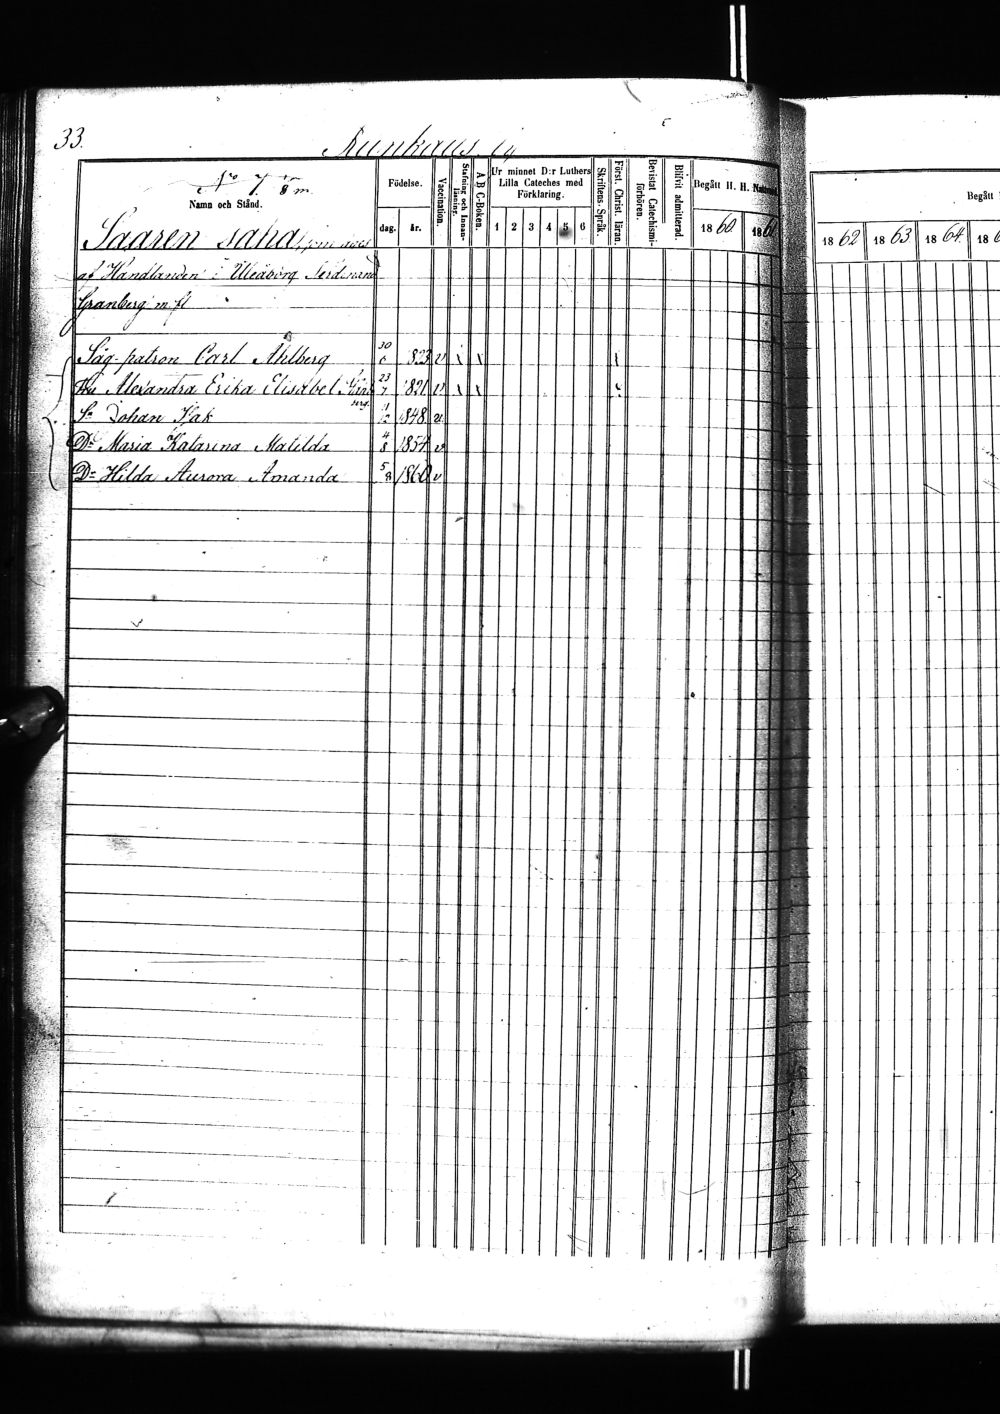 33.
Runkaus
No 7. 1/8 m
Namn och Stånd.
Födelse.
dag.
år.
Vaccination.
Stafning och Innanläsning.
A B C-Boken.
Ur minnet D:r Luthers Lilla Cateches med Förklaring.
1 2 3 4 5 6
Skriftens-Språk
Först. Christ. läran.
Bevistat Catechismiförhören.
Blifvit admitterad.
Begått H. H. Nattvard.
1860
1861
Begått
1862 1863 1864 186
Saaren saha som äges
af Handlanden i Uleåborg Ferdinand
Granberg m. fl
Såg-patron Carl Ahlberg 30/6 823 v
Hu Alexandra Erika Elisabet 23/7 1821 v
Sn Johan Isak 11/12 1848 v
Dr Maria Katarina Matilda 4/8 1854 v
Dr Hilda Aurora Amanda 5/8 1860 v